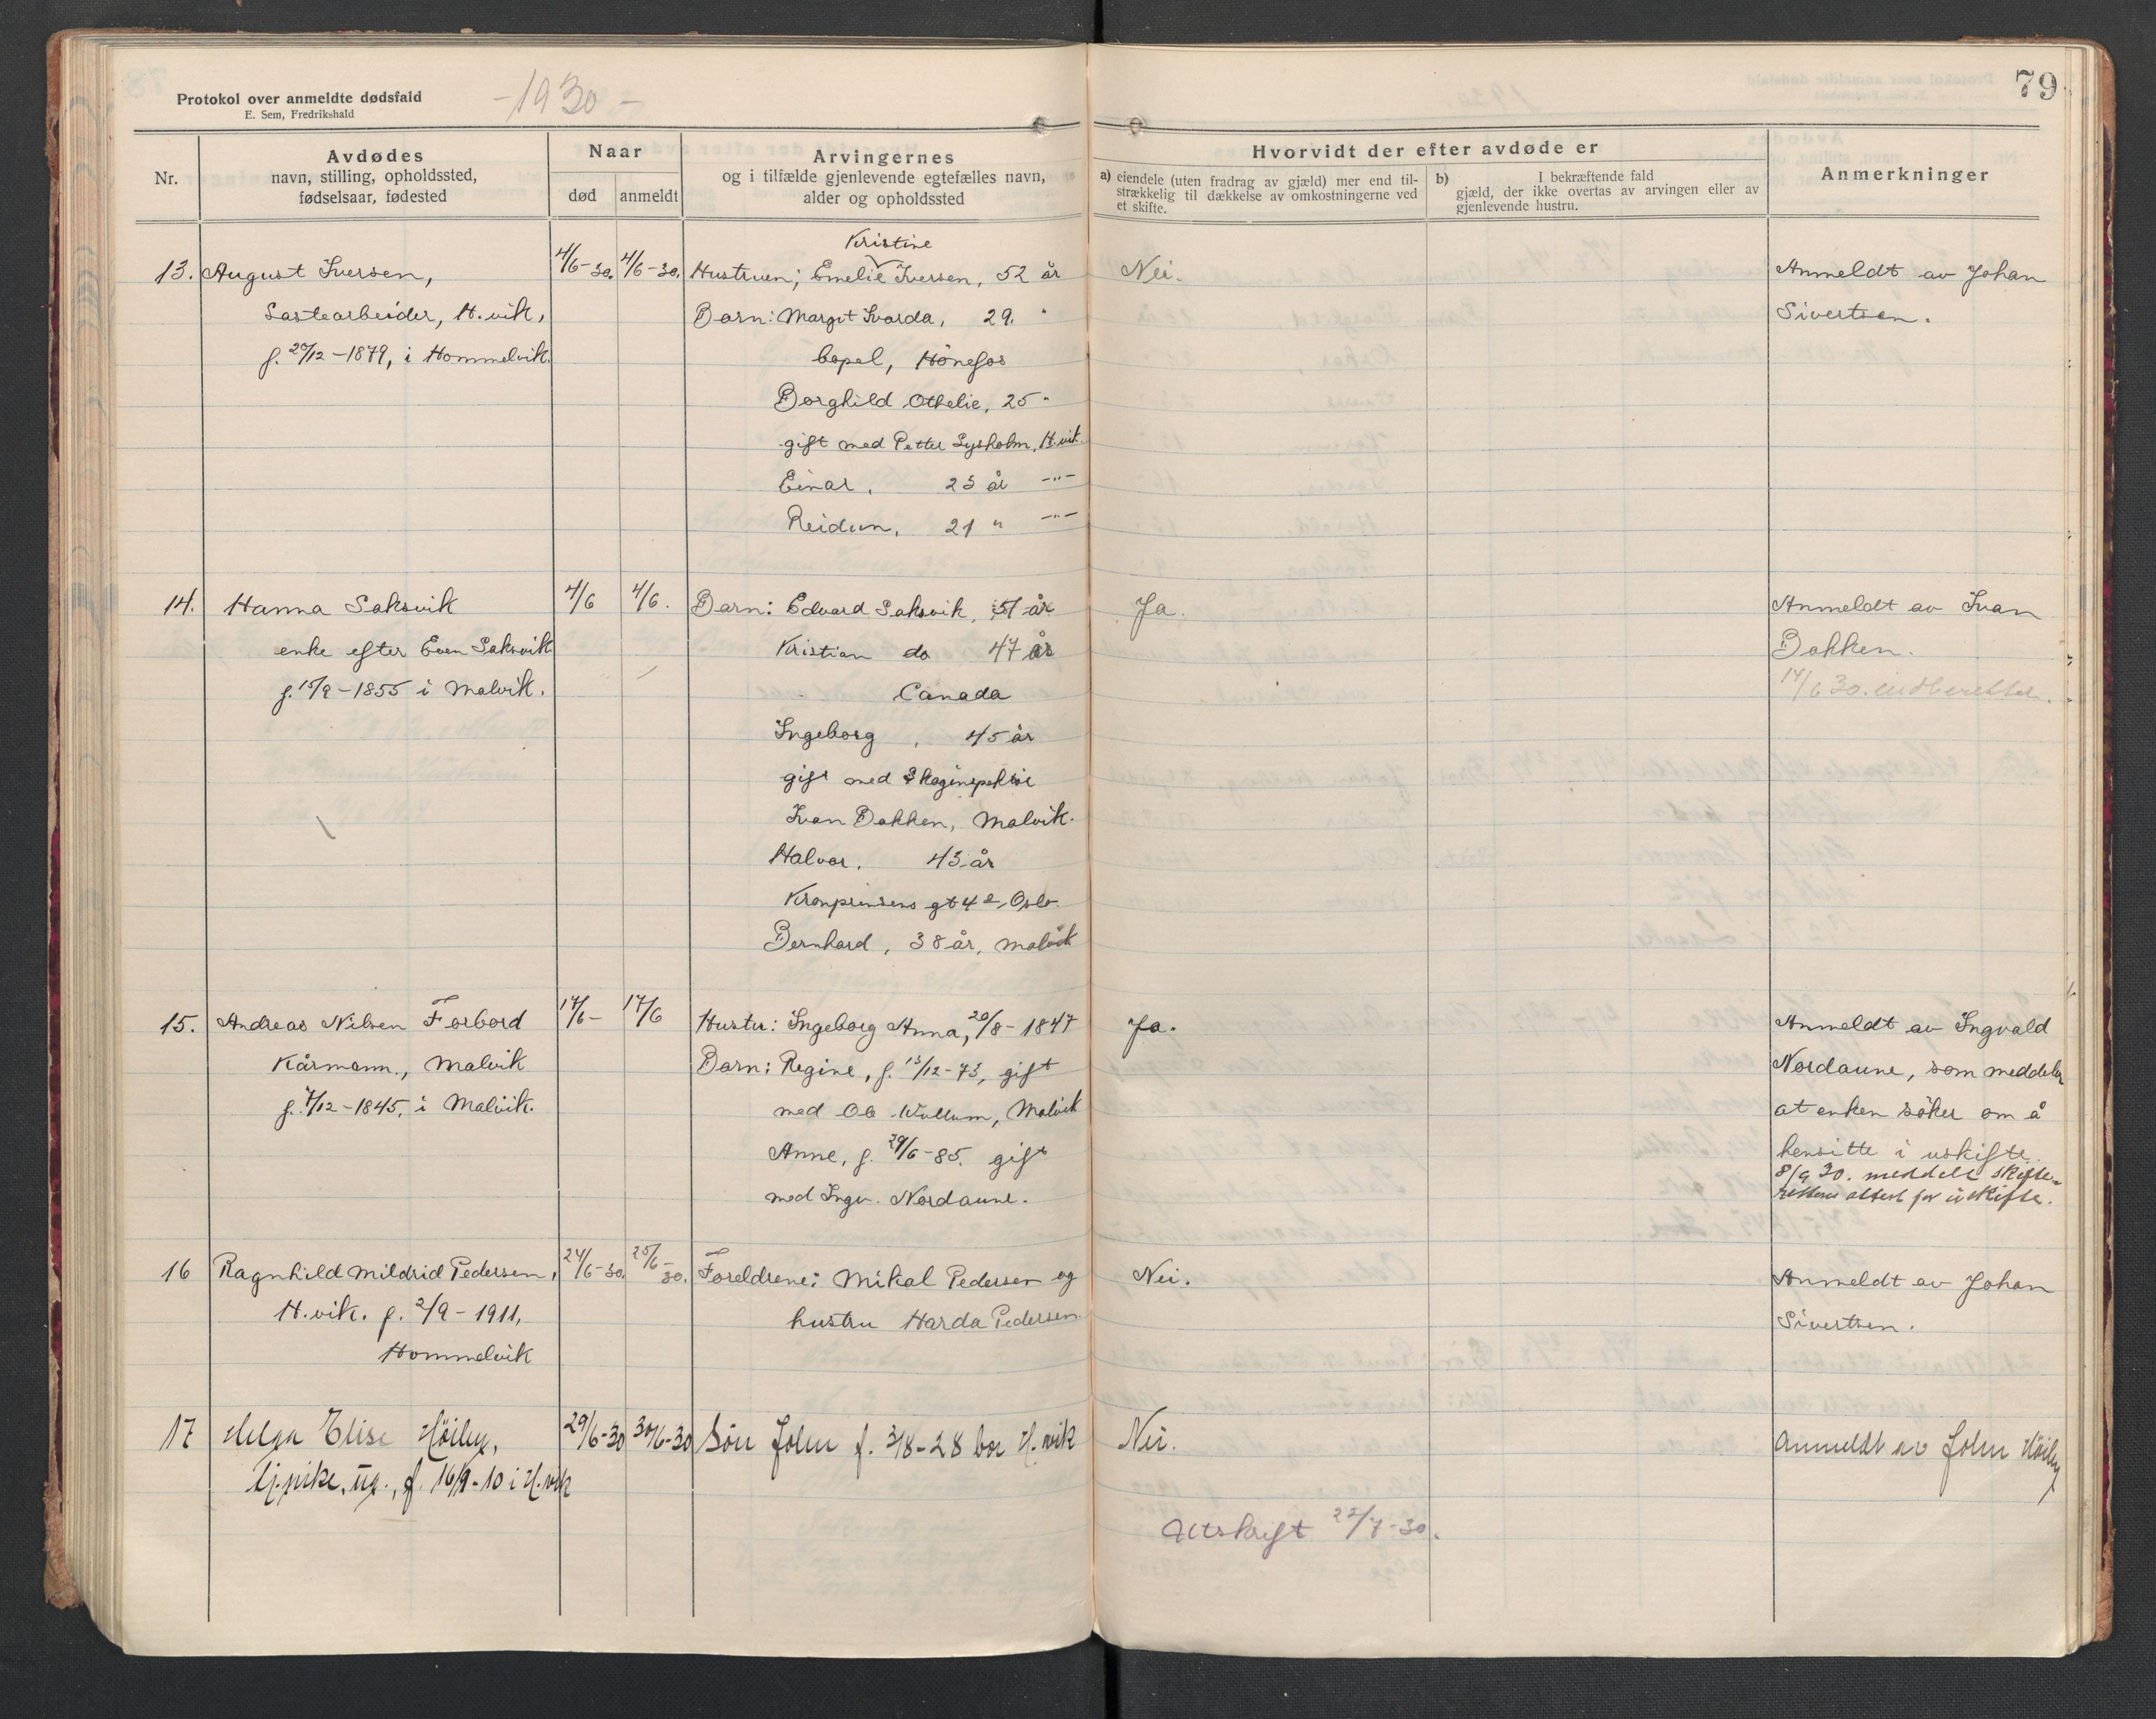 Protokol over anmeldte dødsfald
E. Sem, Fredrikshald
-1930-
79
Nr.
Avdødes
navn, stilling, opholdssted,
fødselsaar, fødested
Naar
død
anmeldt
Arvingernes
og i tilfælde gjenlevende egtefælles navn,
alder og opholdssted
Hvorvidt der efter avdøde er
a) eiendele (uten fradrag av gjæld) mer end til-
strækkelig til dækkelse av omkostningerne ved
et skifte.
b) I bekræftende fald
gjæld, der ikke overtas av arvingen eller av
gjenlevende hustru.
Anmerkninger
13. August Iversen,
Lastearbeider, H.vik,
f. 20/12-1879, i Hommelvik.
4/6-30. 4/6-30.
Kristine
Hustruen; Emelie Iversen, 52 år
Barn: Margit Svarda, 29. "
bopel, Hönefos
Borghild Othelie, 25 "
gift med Petter Lysholm, H.vik.
Einar, 23 år -"-
Reidun, 21 " -"-
Nei.
Anmeldt av Johan
Sivertsen.
14. Hanna Saksvik
enke efter Even Saksvik
f. 15/9-1855 i Malvik.
4/6 4/6.
Barn: Edvard Saksvik, 51 år
Kristian do 47 år
Canada
Ingeborg, 45 år
gift med Skoginspektör
Ivan Bakken, Malvik.
Halvor, 43 år
Kronprinsens gt 42, Oslo.
Bernhard, 38 år, Malvik
Ja.
Anmeldt av Ivan
Bakken.
14/6 30. innberettet.
15. Andreas Nilsen Forbord
Kårmann., Malvik
f. 7/12-1845, i Malvik.
17/6- 17/6
Hustru: Ingeborg Anna, 20/8-1847
Barn: Regine, f. 13/12-73, gift
med Ole Wullum, Malvik
Anne, f. 29/6-85. gift
med Ingv. Nordaune.
Ja.
Anmeldt av Ingvald
Nordaune, som meddeler
at enken söker om å
hensitte i uskifte.
8/9 30. meddelt skifte-
rettens attest for uskifte.
16 Ragnhild Mildrid Pedersen,
H.vik. f. 2/9-1911,
Hommelvik
24/6-30. 25/6-30.
Foreldrene: Mikal Pedersen og
hustru Harda Pedersen.
Nei.
Anmeldt av Johan
Sivertsen.
17 Helga Elise Höiby,
tj.pike, ug., f. 16/9-10 i H.vik
29/6-30 30/6-30
Sön John f. 3/8-28 bor H.vik
Nei.
Anmeldt av John Höiby
Utskrift 22/7-30.